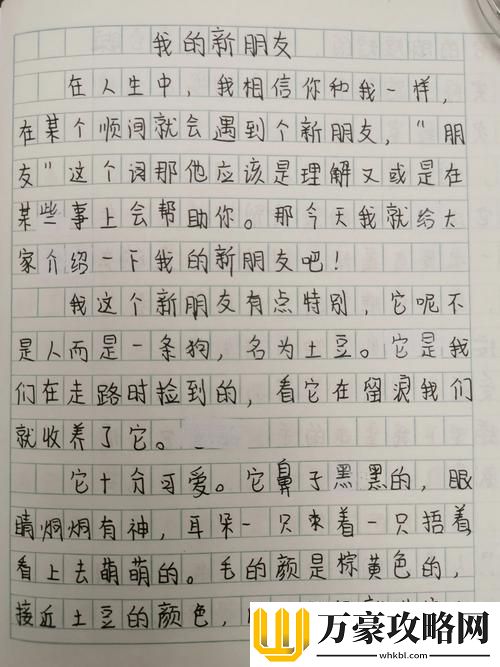 我的新朋友
在人生中，我相信你和我一样，
在某个顺间就会遇到个新朋友，“朋
友”这个词那他应该是理解又或是在
某些事上会帮助你。那今天我就给大
家介绍一下我的新朋友吧！
我这个新朋友有点特别，它呢不
是人而是一条狗，名为土豆。它是我
们在走路时捡到的，看它在留浪我们
就收养了它。
它十分可爱。它鼻子黑黑的，眼
睛炯炯有神，耳朵一只束着一只捂着
看上去萌萌的。毛的颜是棕黄色的，
接近土豆的颜色，
万豪攻略网
whkbl.com